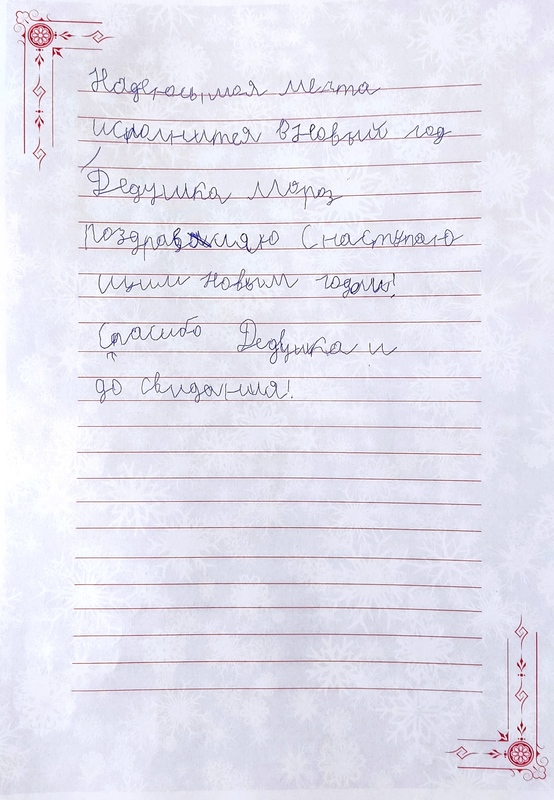 Надеюсь, моя мечта
исполнится в Новый год
Дедушка Мороз
поздравляю С наступаю
щим Новым годом!
Спасибо Дедушка и
до свидания!